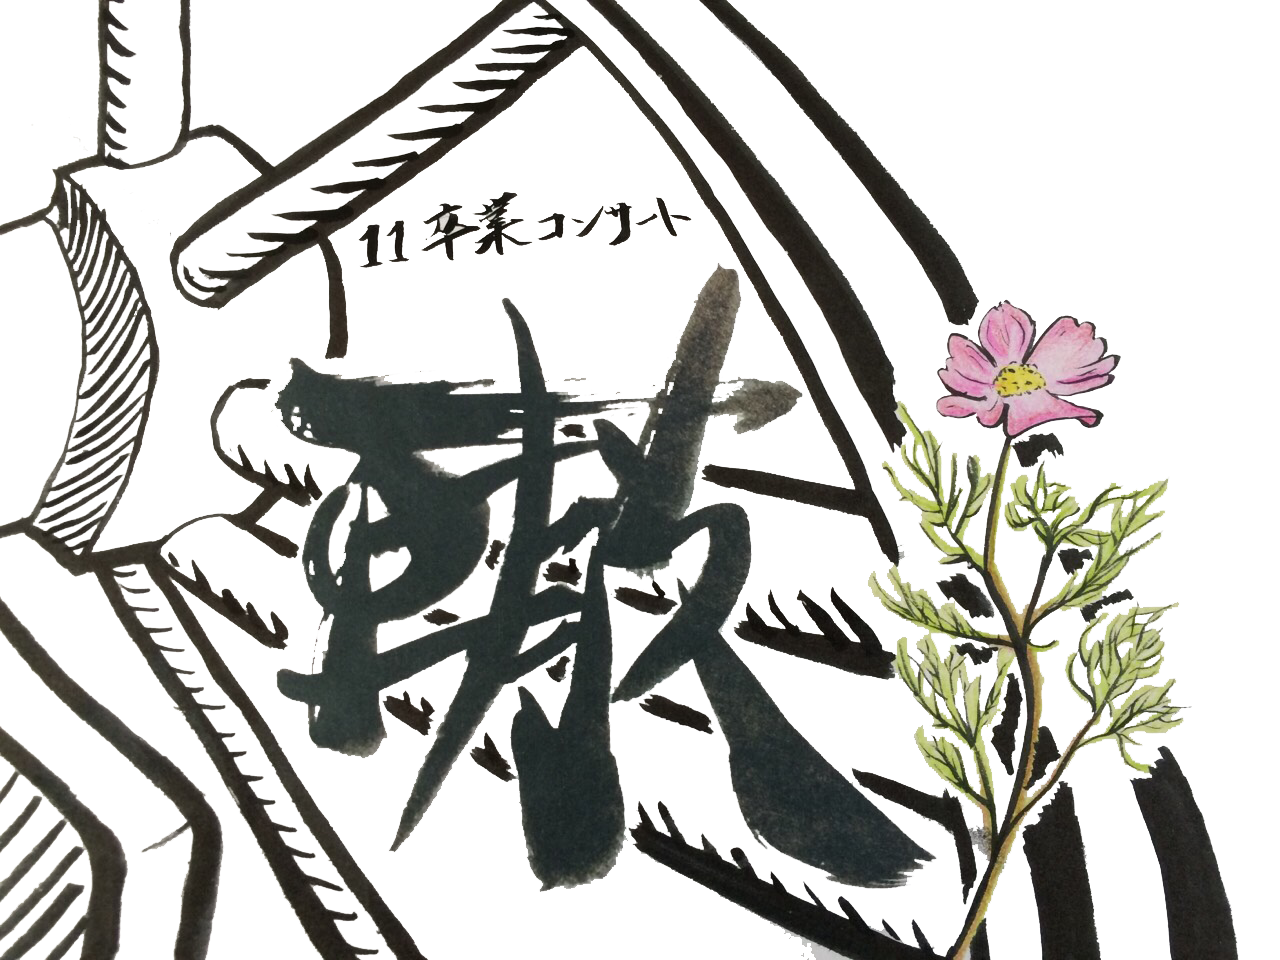 11卒業コンサート
轍